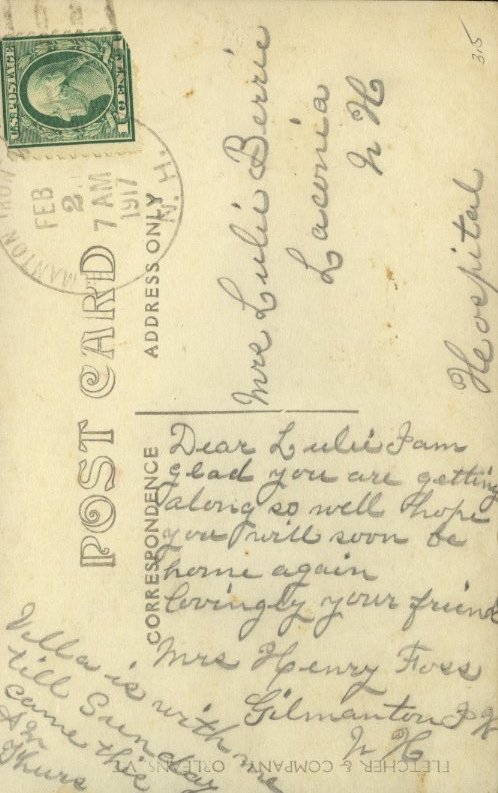 315
U.S. POSTAGE
1 CENT 1
GILMANTON IRON
N.H.
FEB
2
7 AM
1917
POST CARD
ADDRESS ONLY
Mrs Lulie Berrie
Laconia
N H
Hospital
CORRESPONDENCE
Dear Lulie I am
glad you are getting
along so well hope
you will soon be
home again
lovingly your friend
Mrs Henry Foss
Gilmanton I W
N H
Villa is with me
till Sunday
came this
A M
Thurs
FLETCHER & COMPANY, ORLEANS, VT.